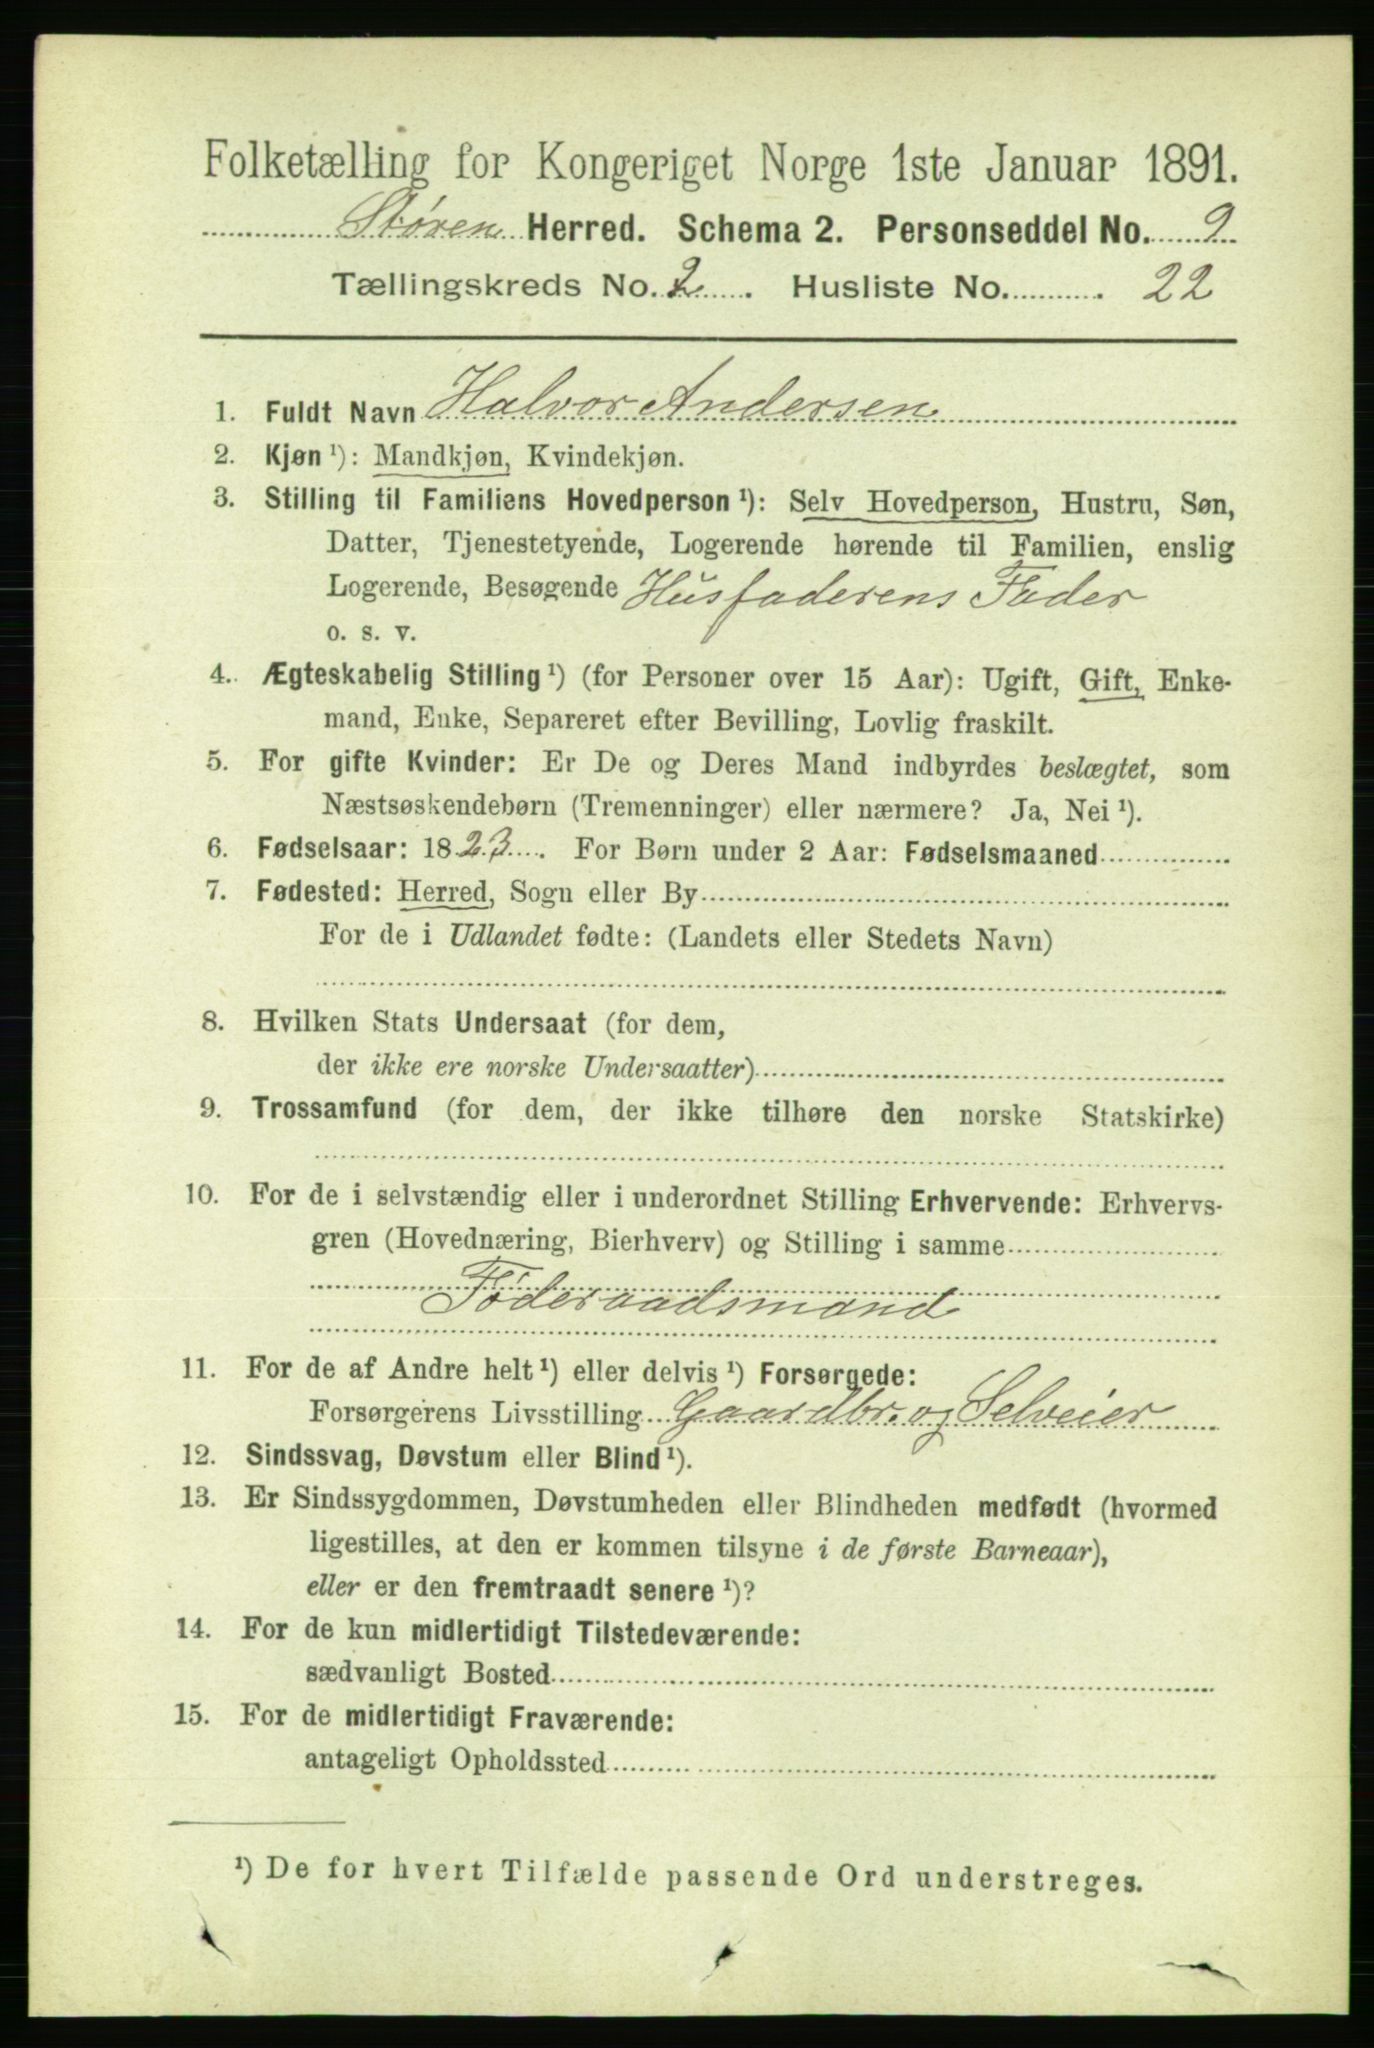 Folketælling for Kongeriget Norge 1ste Januar 1891.
Støren Herred. Schema 2. Personseddel No. 9
Tællingskreds No. 2. Husliste No. 22
1. Fuldt Navn Halvor Andersen
2. Kjøn¹): Mandkjøn, Kvindekjøn.
3. Stilling til Familiens Hovedperson¹): Selv Hovedperson, Hustru, Søn,
Datter, Tjenestetyende, Logerende hørende til Familien, enslig
Logerende, Besøgende Husfaderens Fader
o. s. v.
4. Ægteskabelig Stilling¹) (for Personer over 15 Aar): Ugift, Gift, Enke-
mand, Enke, Separeret efter Bevilling, Lovlig fraskilt.
5. For gifte Kvinder: Er De og Deres Mand indbyrdes beslægtet, som
Næstsøskendebørn (Tremenninger) eller nærmere? Ja, Nei¹).
6. Fødselsaar: 1823. For Børn under 2 Aar: Fødselsmaaned
7. Fødested: Herred, Sogn eller By
For de i Udlandet fødte: (Landets eller Stedets Navn)
8. Hvilken Stats Undersaat (for dem,
der ikke ere norske Undersaatter)
9. Trossamfund (for dem, der ikke tilhøre den norske Statskirke)
10. For de i selvstændig eller i underordnet Stilling Erhvervende: Erhvervs-
gren (Hovednæring, Bierhverv) og Stilling i samme
Föderaadsmand
11. For de af Andre helt¹) eller delvis¹) Forsørgede:
Forsørgerens Livsstilling Gaardbr. og Selveier
12. Sindssvag, Døvstum eller Blind¹).
13. Er Sindssygdommen, Døvstumheden eller Blindheden medfødt (hvormed
ligestilles, at den er kommen tilsyne i de første Barneaar),
eller er den fremtraadt senere¹)?
14. For de kun midlertidigt Tilstedeværende:
sædvanligt Bosted
15. For de midlertidigt Fraværende:
antageligt Opholdssted
¹) De for hvert Tilfælde passende Ord understreges.